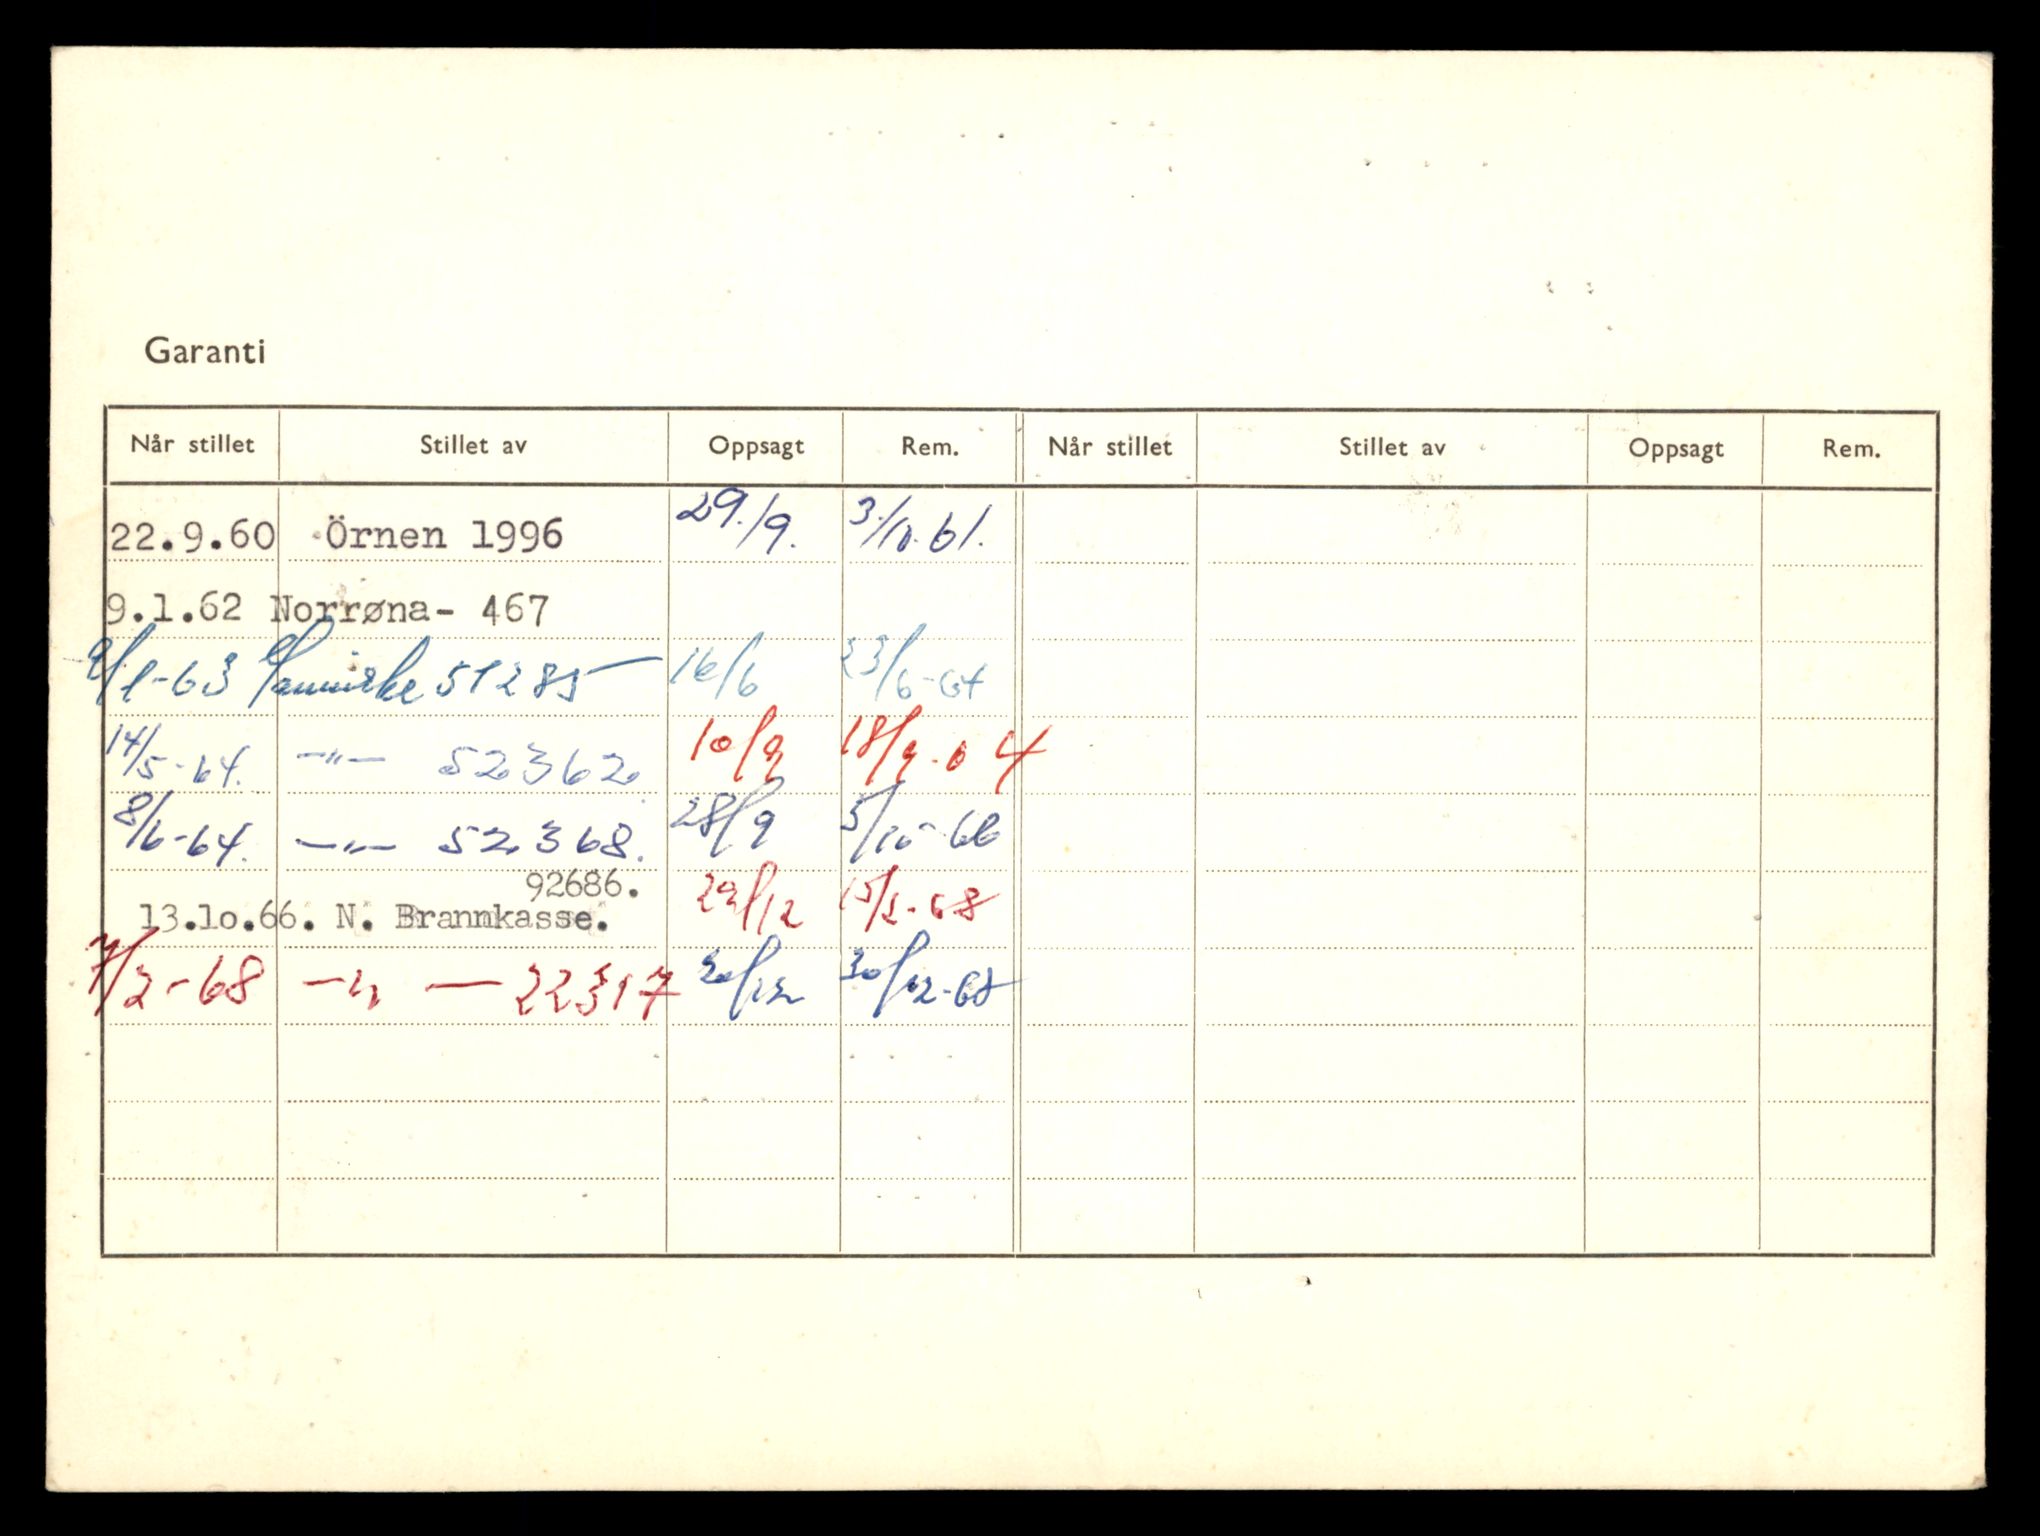 Garanti
Når stillet Stillet av Oppsagt Rem. Når stillet Stillet av Oppsagt Rem.
22.9.60 Örnen 1996 29./9. 3./10.61.
9.1.62 Norrøna- 467
9/1-63 51285 16/6 23/6-64
14/5-64. —"— 52362 10/9 18/9-64
8/6-64. —"— 52368. 28/9 5/10-66
92686.
13.10.66. N. Brannkasse. 29/12 15/2-68
7/2-68 —"— 22317 30/12 30/12-68